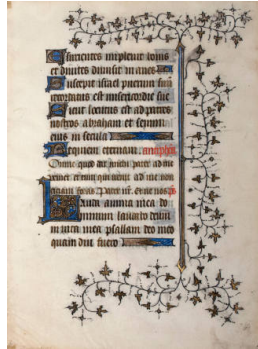 Esurientes implevit bonis
et divites dimisit inanes
Suscepit israel puerum suū
recordatus est misericordie sue
Sicut locutus est ad patres
nostros abraham et semini
eius in secula
Requiem eternam. antiphō
Omne quod dat michi pater ad me
veniet et eum qui venit ad me non
eiciam foras Pater nr̄. Et ne nos p̄s
Lauda anima mea do
minum laudabo deum
in vita mea psallam deo meo
quamdiu fuero